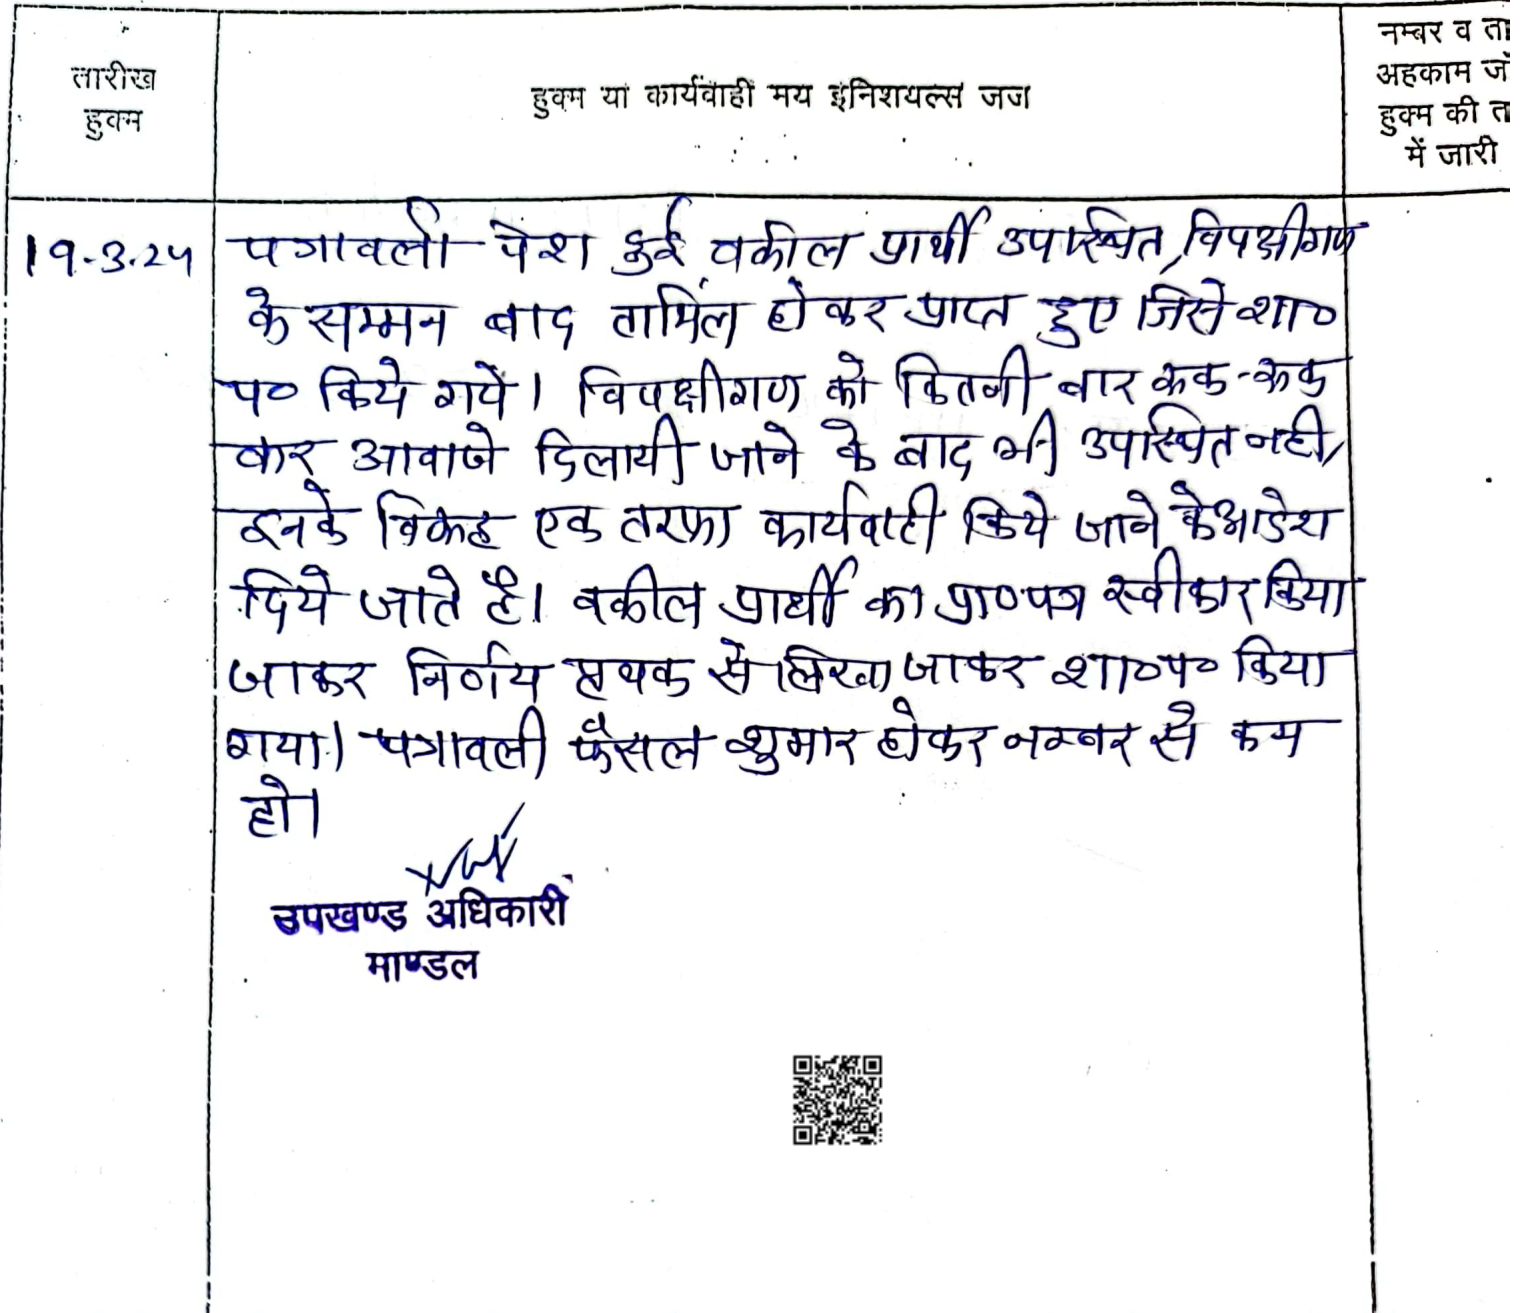 तारीख
हुक्म
हुक्म या कार्यवाही मय इनिशयल्स जज
नम्बर व ता
अहकाम जॊ
हुक्म की त
में जारी
19.3.24
पत्रावली पेश हुई, वकील प्रार्थी उपस्थित, विपक्षीगण
के सम्मन बाद तामिल होकर प्राप्त हुए जिसे शा०
प० किये गये। विपक्षीगण को कितनी बार रूक-रूक
कर आवाजे दिलायी जाने के बाद भी उपस्थित नही,
इनके विरूद्ध एक तरफा कार्यवाही किये जाने के आदेश
दिये जाते है। वकील प्रार्थी का प्रा०पत्र स्वीकार किया
जाकर निर्णय पृथक से लिखा जाकर शा०प० किया
गया। पत्रावली फैसल शुमार होकर नम्बर से कम
हो।
उपखण्ड अधिकारी
माण्डल